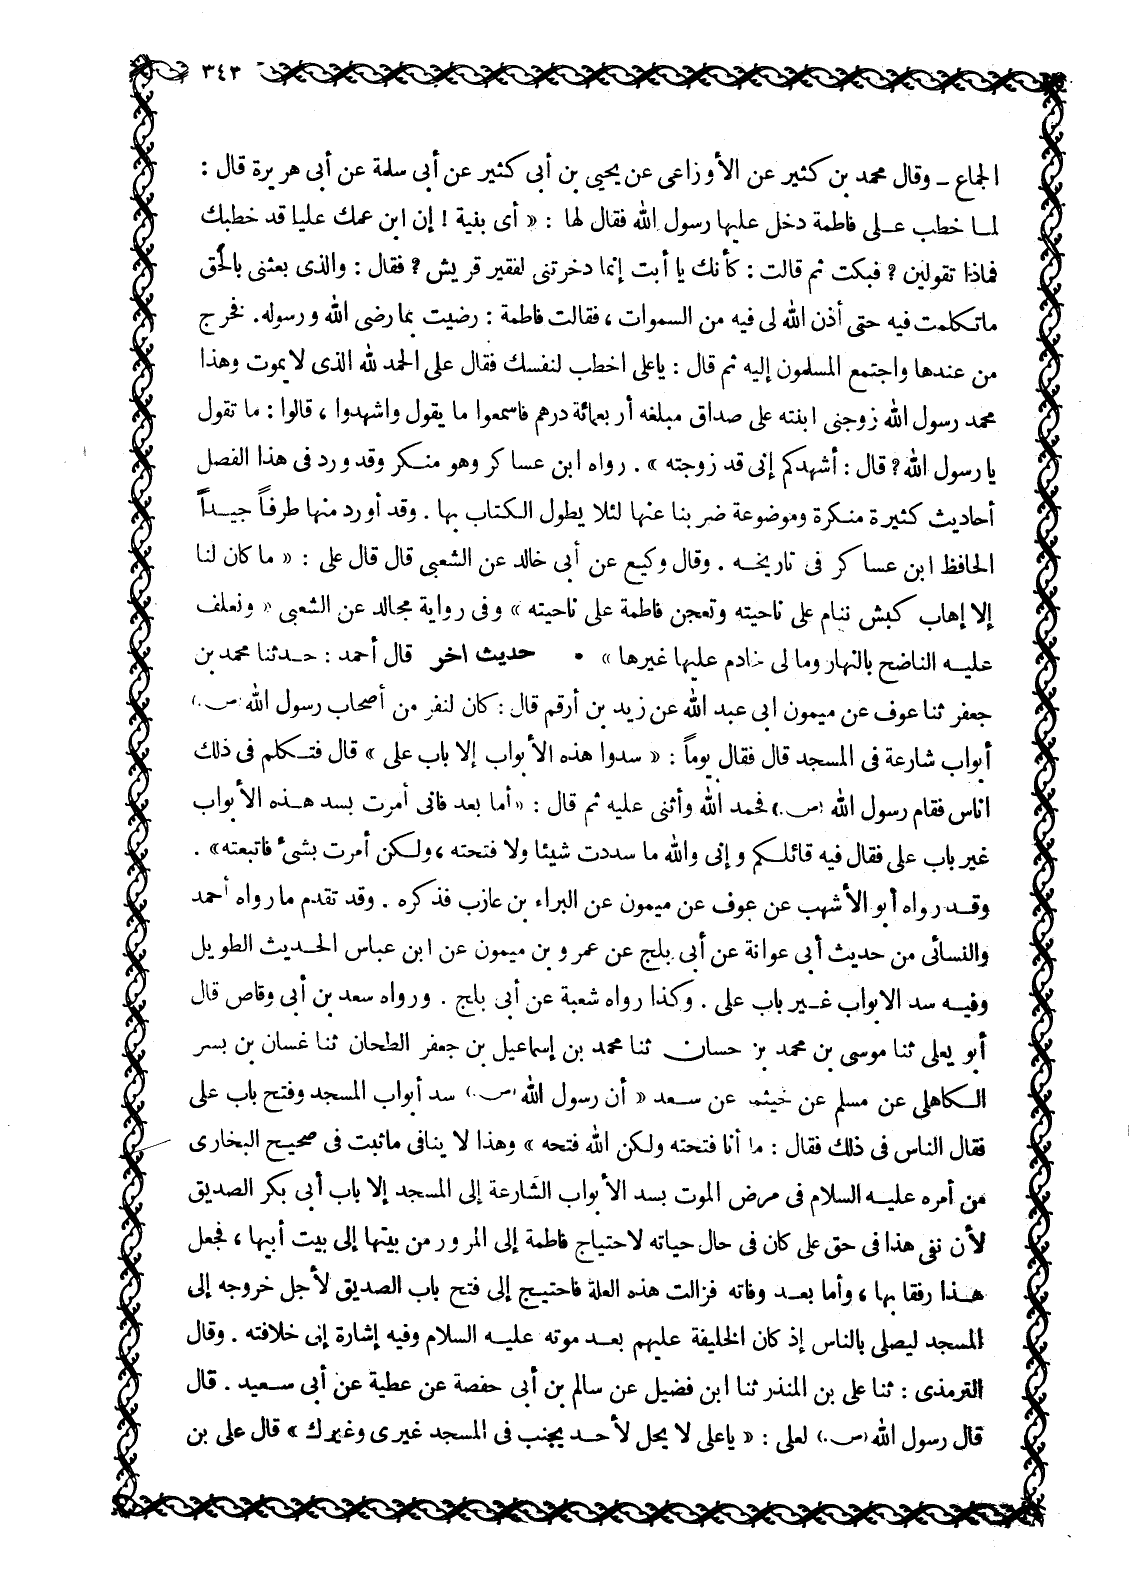 ٣٤٣
الجماع ــ وقال محمد بن كثير عن الأوزاعى عن يحيى بن أبى كثير عن أبى سلمة عن أبى هريرة قال :
لما خطب على فاطمة دخل عليها رسول الله فقال لها : « أى بنية ! إن ابن عمك عليا قد خطبك
فماذا تقولين ؟ فبكت ثم قالت : كأنك يا أبت إنما دخرتنى لفقير قريش ؟ فقال : والذى بعثنى بالحق
ماتكلمت فيه حتى أذن الله لى فيه من السموات ، فقالت فاطمة : رضيت بما رضى الله ورسوله. فخرج
من عندها واجتمع المسلمون إليه ثم قال : ياعلى اخطب لنفسك فقال على الحمد لله الذى لا يموت وهذا
محمد رسول الله زوجنى ابنته على صداق مبلغه أربعمائة درهم فاسمعوا ما يقول واشهدوا ، قالوا : ما تقول
يا رسول الله ؟ قال : أشهدكم إنى قد زوجته » . رواه ابن عساكر وهو منكر وقد ورد فى هذا الفصل
أحاديث كثيرة منكرة وموضوعة ضربنا عنها لئلا يطول الكتاب بها . وقد أورد منها طرفاً جيداً
الحافظ ابن عساكر فى تاريخه . وقال وكيع عن أبى خالد عن الشعبى قال قال على : « ما كان لنا
إلا إهاب كبش ننام على ناحيته وتعجن فاطمة على ناحيته » وفى رواية مجالد عن الشعبى « ونعلف
عليه الناضح بالنهار وما لى خادم عليها غيرها » • حديث اخر قال أحمد : حدثنا محمد بن
جعفر ثنا عوف عن ميمون ابى عبد الله عن زيد بن أرقم قال : كان لنفر من أصحاب رسول الله (ص.)
أبواب شارعة فى المسجد قال فقال يوماً : « سدوا هذه الأبواب إلا باب على » قال فتكلم فى ذلك
اناس فقام رسول الله (ص.) فحمد الله وأثنى عليه ثم قال : « أما بعد فانى أمرت بسد هذه الأبواب
غير باب على فقال فيه قائلكم وإنى والله ما سددت شيئا ولا فتحته ، ولكن أمرت بشىء فاتبعته » .
وقد رواه أبو الأشهب عن عوف عن ميمون عن البراء بن عازب فذكره . وقد تقدم ما رواه أحمد
والنسائى من حديث أبى عوانة عن أبى بلج عن عمرو بن ميمون عن ابن عباس الحديث الطويل
وفيه سد الابواب غير باب على . وكذا رواه شعبة عن أبى بلج . ورواه سعد بن أبى وقاص قال
أبو يعلى ثنا موسى بن محمد بن حسان ثنا محمد بن إسماعيل بن جعفر الطحان ثنا غسان بن بسر
الكاهلى عن مسلم عن خيثمه عن سعد « أن رسول الله (ص.) سد أبواب المسجد وفتح باب على
فقال الناس فى ذلك فقال : ما أنا فتحته ولكن الله فتحه » وهذا لا ينافى ماثبت فى صحيح البخارى
من أمره عليه السلام فى مرض الموت بسد الأبواب الشارعة إلى المسجد إلا باب أبى بكر الصديق
لأن نفى هذا فى حق على كان فى حال حياته لاحتياج فاطمة إلى المرور من بيتها إلى بيت أبيها ، فجعل
هذا رفقا بها ، وأما بعد وفاته فزالت هذه العلة فاحتيج إلى فتح باب الصديق لأجل خروجه إلى
المسجد ليصلى بالناس إذ كان الخليفة عليهم بعد موته عليه السلام وفيه إشارة إلى خلافته . وقال
الترمذى : ثنا على بن المنذر ثنا ابن فضيل عن سالم بن أبى حفصة عن عطية عن أبى سعيد . قال
قال رسول الله (ص.) لعلى : « ياعلى لا يحل لأحد يجنب فى المسجد غيرى وغيرك » قال على بن